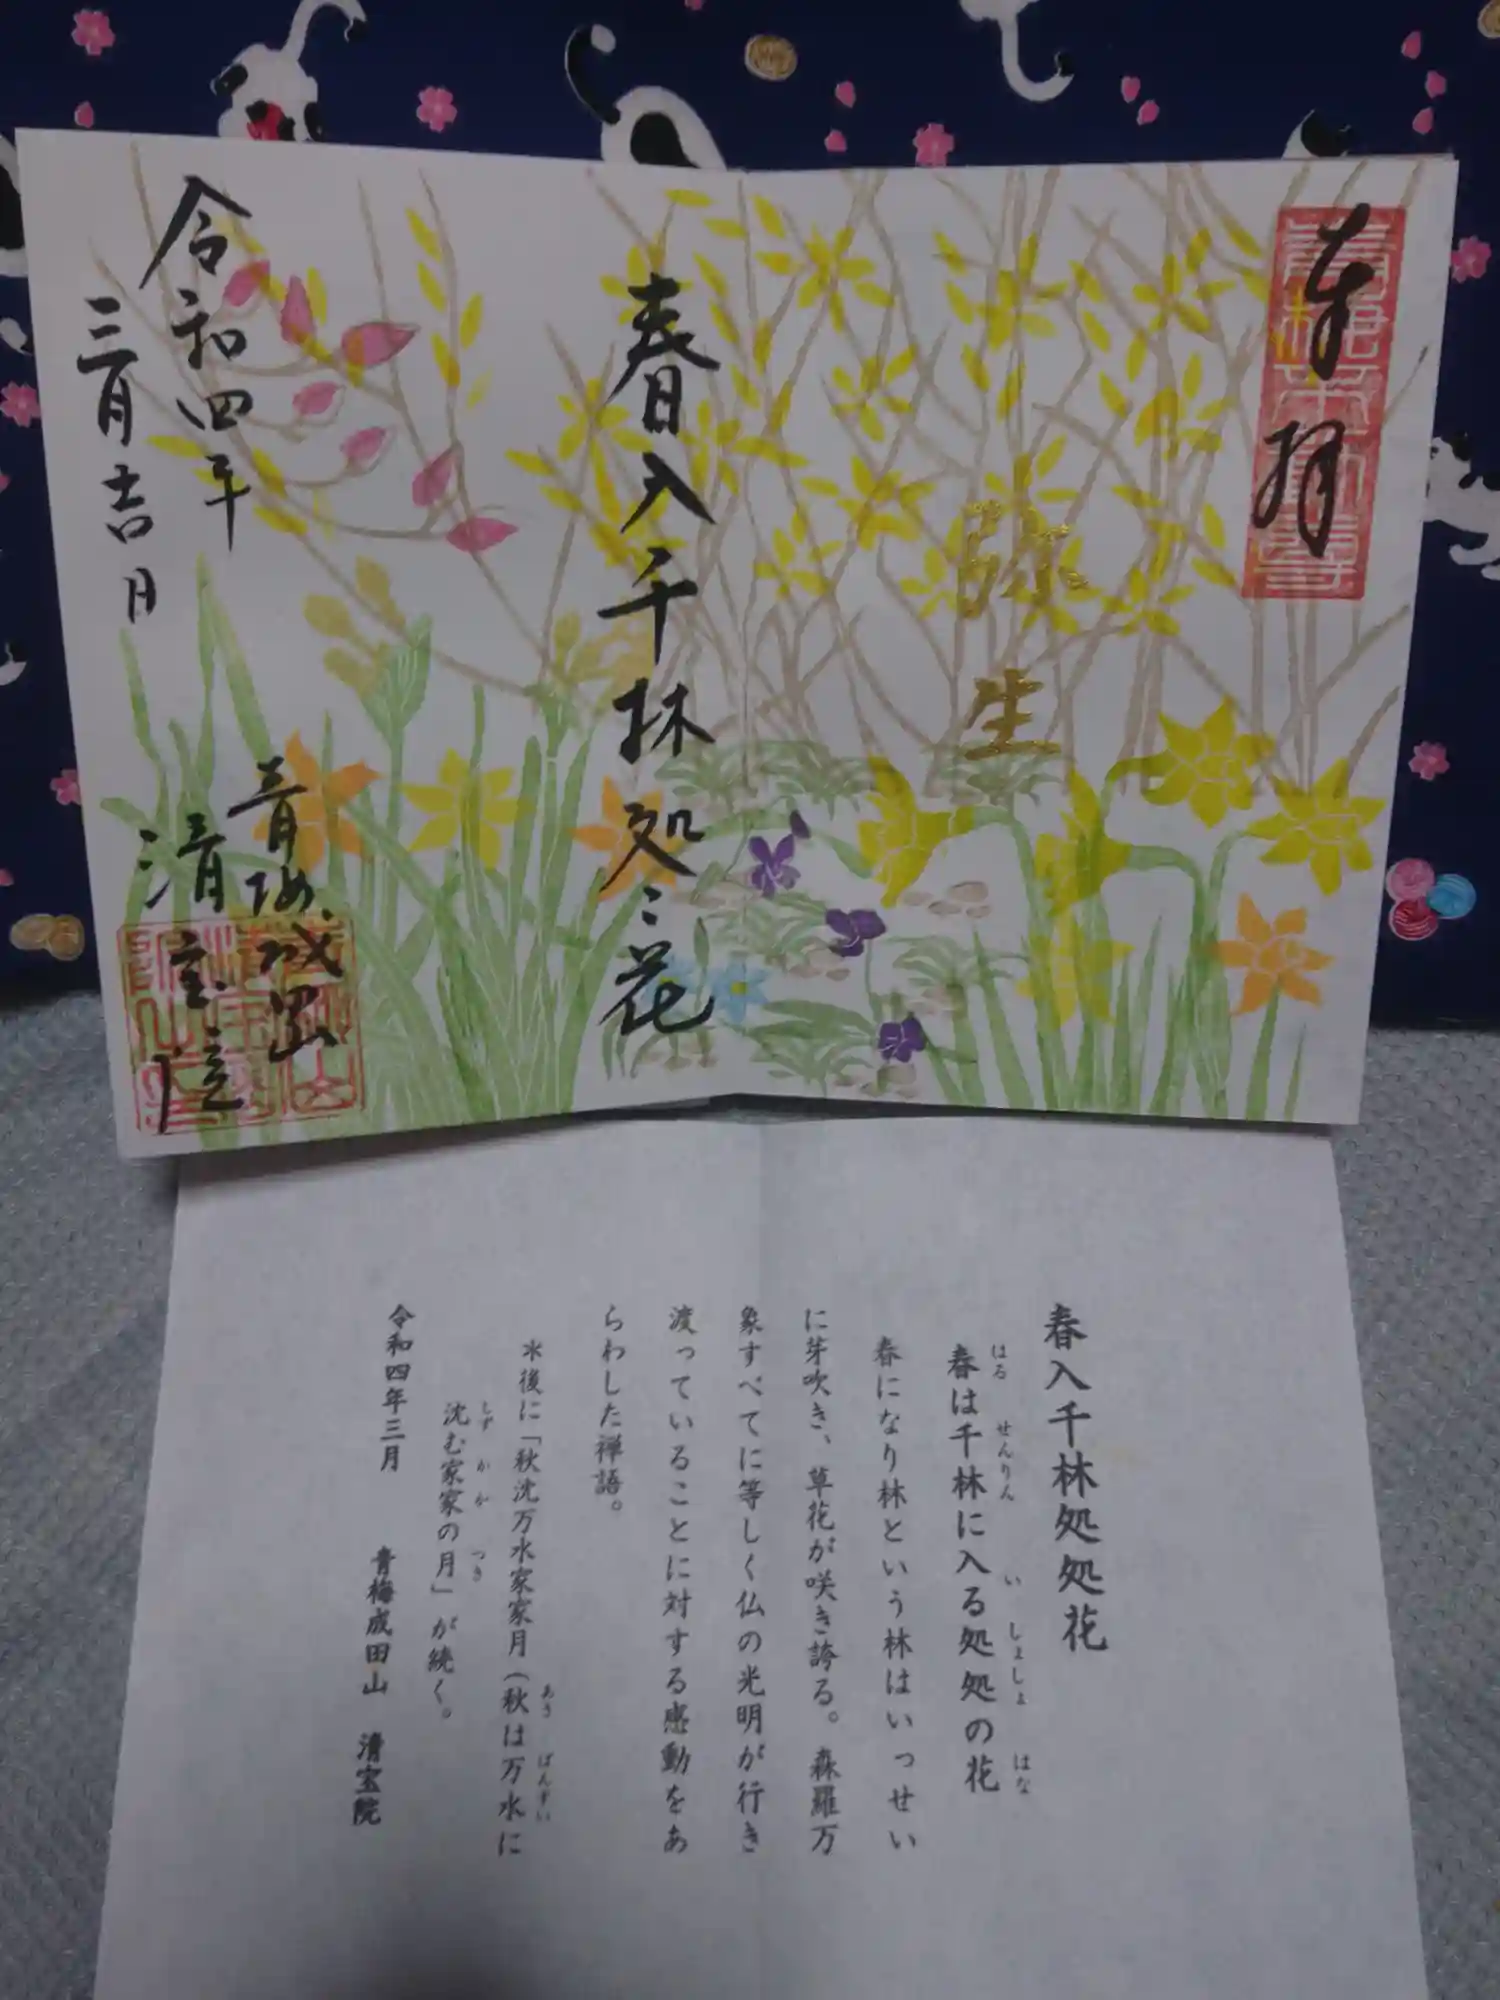 奉拝
弥生
春入千林処々花
令和四年
三月吉月
青梅成田山
清宝院
春入千林処処花
春は千林に入る処処の花
はる せんりん い しょしょ はな
春になり林という林はいっせい
に芽吹き、草花が咲き誇る。森羅万
象すべてに等しく仏の光明が行き
渡っていることに対する感動をあ
らわした禅語。
*後に「秋沈万水家家月(秋は万水に
あき ばんすい
沈む家家の月」が続く。
しず かか つき
令和四年三月 青梅成田山 清宝院